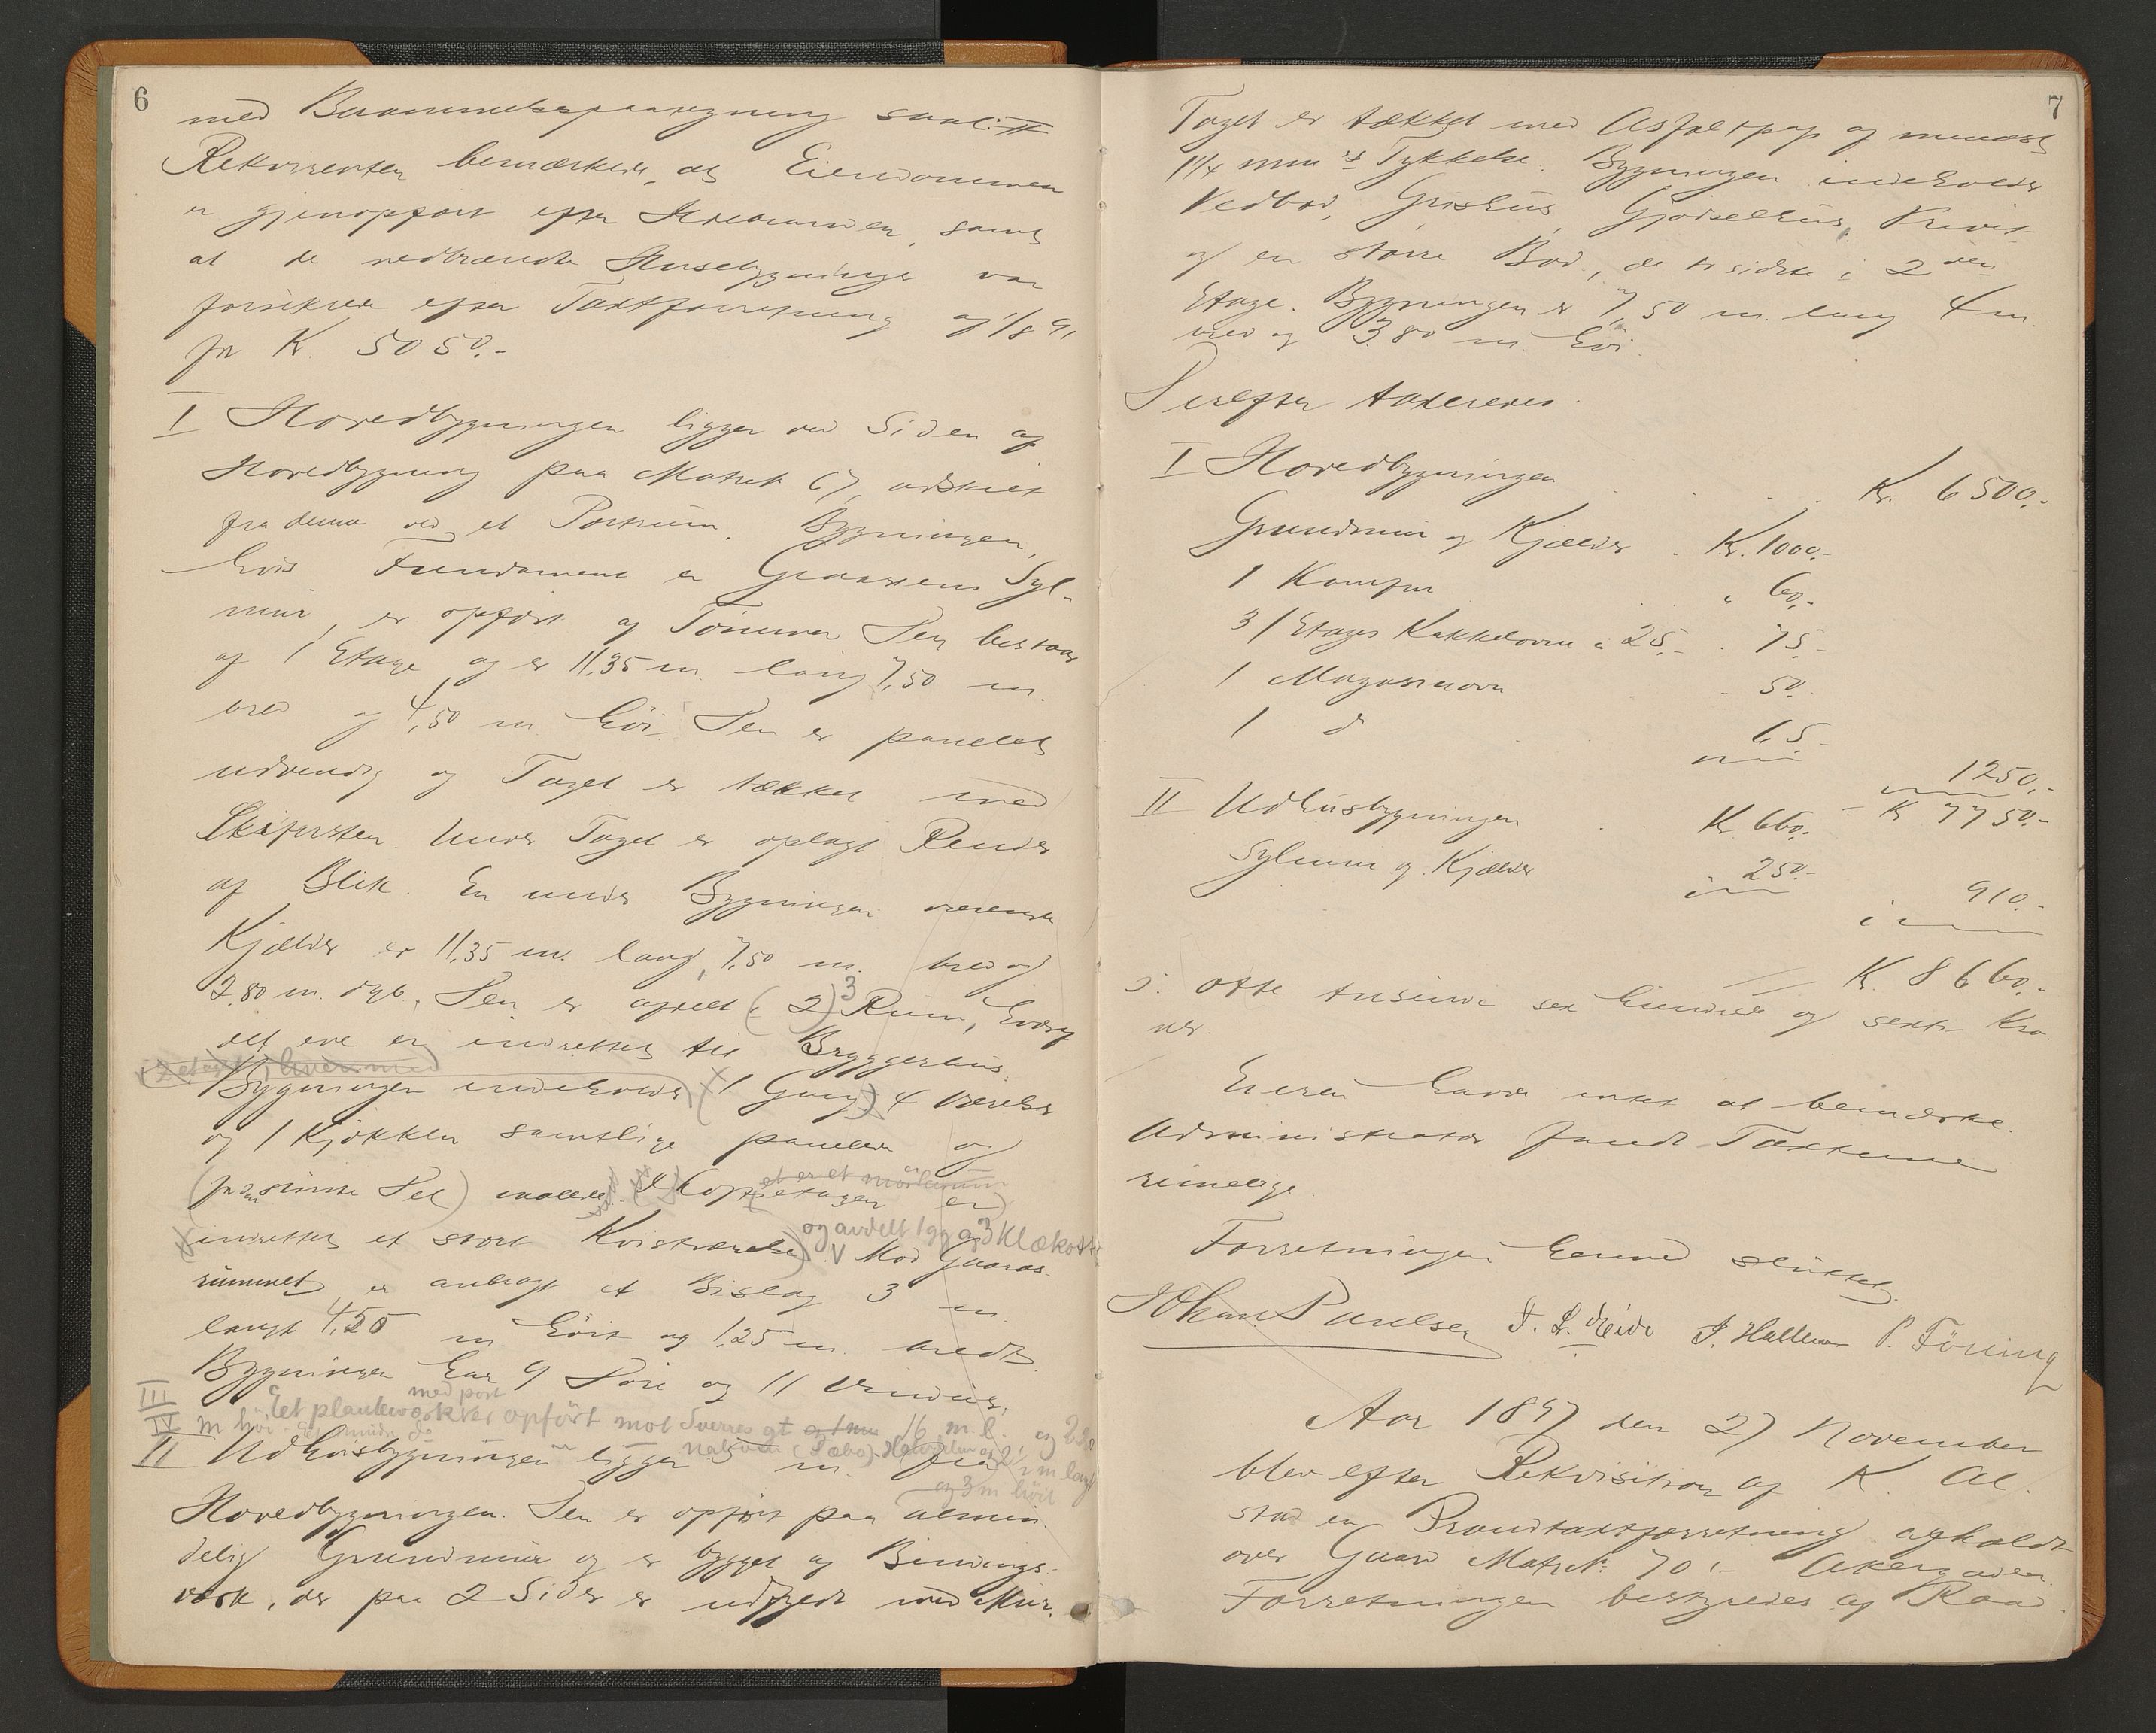 6
med Brammelsespaategning saal:
Rekvirenten bemærkede, at Eiendommen
er gjenopført efter Ildebranden, samt
at de nedbrændte Husebygninger var
forsikrede efter Taxtforretning af 1/8 91
for K. 5050.-
I Hovedbygningen ligger ved Siden af
Hovedbygning paa Matr.№ 67, adskilt
fra denne ved et Portrum. Bygningen,
hvis Fundament er Graastens Syl-
mur, er opført af Tømmer. Den bestaar
af 1 Etage og er 11,35 m. lang 7,50 m.
bred og 4,50 m høi. Den er panelet
udvendig og Taget er tækket med
Skifersten. Under Taget er oplagt Render
af Blik. En under Bygningen værende
Kjælder er 11,35 m. lang, 7,50 m. bred og
2,80 m. dyb. Den er afdelt i (2) 3 Rum, hvoraf
det ene er indrettet til Bryggerhus.
2 etager, hver med
Bygningen indeholder (1 Gang) 4 Værelser
og 1 Kjøkken samtlige panelede og
(for største Del) malede. I (Loftsetagen er)
et er et mørkerum
indrettet et stort Kvistværelse). V Mod Gaards-
og avdelt 1 gg og 3 Klækott
rummet er anbragt et Bislag 3 m.
langt 4,25 m høit og 1,25 m. bredt.
Bygningen har 9 Døre og 11 Vinduer.
III Et plankeværk er opført mot Sverres gt 16 m.l. og 2,20
med port
IV m høi
II Udhusbygningen ligger 5 m. fra
og 3 m høit
Hovedbygningen. Den er opført paa almin-
delig Grundmur og er bygget af Bindings-
værk, der paa 2 Sider er udfyldt med Mur.
7
Taget er tækket med Asfaltpap af mindst
1 1/4 mm's Tykkelse. Bygningen indeholder
Vedbod, Grishus, Gjødselhus, Privet
og en større Bod, de to sidste i 2den
Etage. Bygningen er 7,50 m. lang 4 m.
bred og 3.80 m høi.
Derefter taxeredes:
I Hovedbygningen . . . Kr. 6500.-
Grundmur og Kjælder . Kr. 1000.-
1 Komfur . " 60.-
3 1 Etages Kakkelovne a 25.- . 75.-
1 Magasinovn . 50.
1 d . 65.-
1250.-
- K 7750.-
II Udhusbygningen . Kr. 660.-
Sylmur og Kjælder 250.-
910.-
Kr. 8660.-
ɔ: otte tusinde sex hundrede og sexti Kro-
ner.
Eieren havde intet at bemærke.
Administrator fandt Taxterne
rimelige.
Forretningen hermed sluttet.
Johan Paulsen J. L. Heide J. Halleraa P. Föring
Aar 1897 den 27 November
blev efter Rekvisition af K. Al-
stad en Brandtaxtforretning afholdt
over Gaard Matr.№ 70 i Akergaden.
Forretningen bestyredes af Raad-